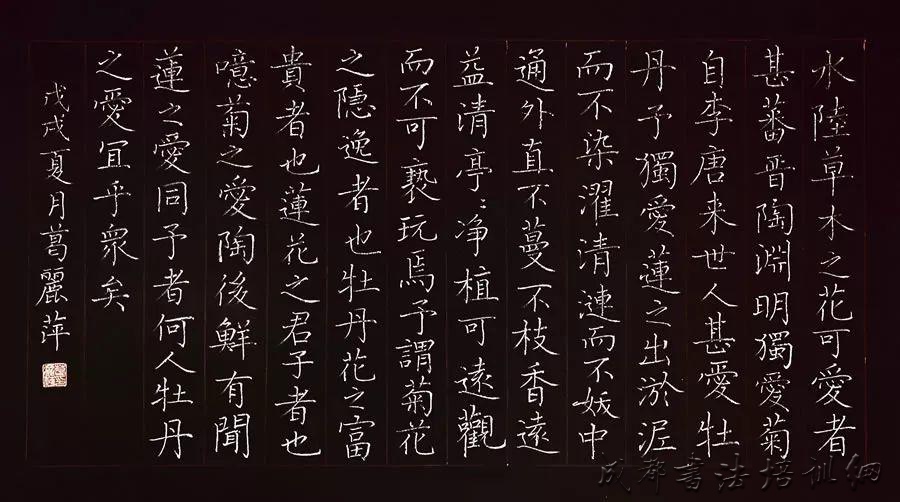 水陸草木之花可愛者
甚蕃晋陶淵明獨愛菊
自李唐来世人甚愛牡
丹予獨愛蓮之出淤泥
而不染濯清漣而不妖中
通外直不蔓不枝香遠
益清亭〻净植可遠觀
而不可褻玩焉予謂菊花
之隱逸者也牡丹花之富
貴者也蓮花之君子者也
噫菊之愛陶後鮮有聞
蓮之愛同予者何人牡丹
之愛宜乎衆矣
戊戌夏月葛麗萍
成都书法培训网